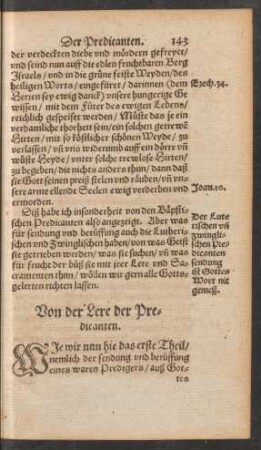 Der Predicanten. 143
der verdeckten diebe vnd mördern gefreyet/
vnd seind nun auff die edlen fruchtbaren Berg
Israels/ vnd in die grüne feiste Weyden/ des
heiligen Worts/ eingefüret/ darinnen (dem
Herren sey ewig danck) vnsere hungerige Ge
wissen/ mit dem fůter des ewigen Lebens/
reichlich gespeiset werden/ Müste das je ein
verdamlichs thorhen sein/ ein solchen getrewē
Hirten/ mit so köstlicher schönen Weyde/ zu
verlassen/ vñ vns widerumb auff ein dörre vñ
wůste Heyde/ vnter solche trewlose Hirten/
zu begeben/ die nichts anders thůn/ dann daß
sie Gott seinen preiß stelen vnd rauben/ vñ vn-
sere arme ellende Seelen ewig verderben vnd
ermorden.
Ezech. 34.
Joan. 10.
Diß hab ich insonderheit von den Bäpsti-
schen Predicanten also angezeigt. Aber was
für sendung vnd berüffung auch die Lutheri-
schen vnd Zwinglischen haben/ von was Geist
sie getrieben werden/ was sie sůchen/ vñ was
für frucht der bůß sie mit jrer Lere vnd Sa-
cramenten thůn/ wöllen wir gern alle Gotts-
gelerten richten lassen.
Der Lute
rischen vñ
zwingli-
schen Pre-
dicanten
sendung
ist Gottes
Wort nit
gemeß.
Von der Lere der Pre-
dicanten.
Wie wir nun hie das erste Theil/
nemlich der sendung vnd berüffung
eines waren Predigers/ auß Got-
tes